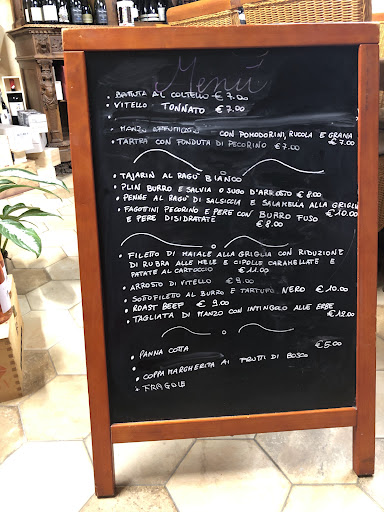 Menù
• BATTUTA AL COLTELLO € 7.00
• VITELLO TONNATO € 7.00
• MANZO AFFUMICATO CON POMODORINI, RUCOLA E GRANA € 7.00
• TARTRA CON FONDUTA DI PECORINO € 7.00
• TAJARIN AL RAGÙ BIANCO
• PLIN BURRO E SALVIA O SUGO D'ARROSTO € 8.00
• PENNE AL RAGÙ DI SALSICCIA E SALAMELLA ALLA GRIGLIA € 10.00
• FAGOTINI PECORINO E PERE CON BURRO FUSO
E PERE DISIDRATATE € 8.00
• FILETTO DI MAIALE ALLA GRIGLIA CON RIDUZIONE
DI RUBRA ALLE MELE E CIPOLLE CARAMELLATE E
PATATE AL CARTOCCIO € 11.00
• ARROSTO DI VITELLO € 9.00
• SOTOFILETTO AL BURRO E TARTUFO NERO € 10.00
• ROAST BEEF € 9.00
• TAGLIATA DI MANZO CON INTINGOLO ALLE ERBE € 12.00
• PANNA COTTA € 5.00
• COPPA MARGHERITA AI FRUTTI DI BOSCO
• FRAGOLE